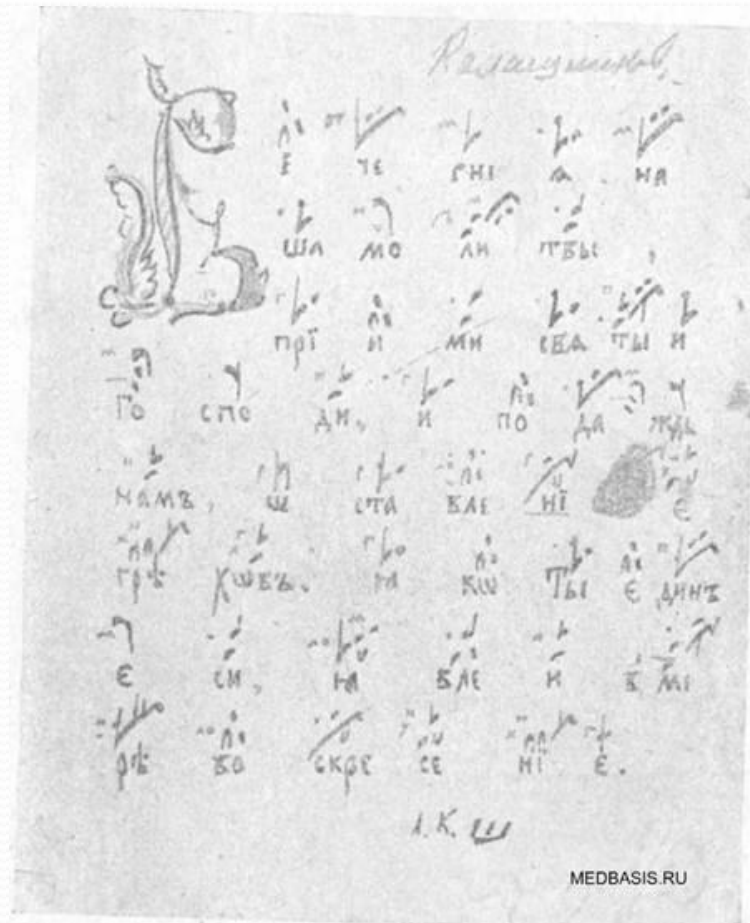 В Е ЧЕ РНІ Ѧ НА
ША МО ЛИ ТВЫ,
ПРЇ И МИ СВѦ ТЫ И
ГО СПО ДИ, И ПО ДА ЖДЬ
НАМЪ, Ѡ СТА ВЛЕ НЇ Є
ГРѢ ХѠВЪ. Ꙗ КѠ ТЫ Є ДИНЪ
Є СИ, Ꙗ ВЛЕ И В МІ
РѢ ВО СКРЕ СЕ НЇ Є.
А. К. Ш
MEDBASIS.RU